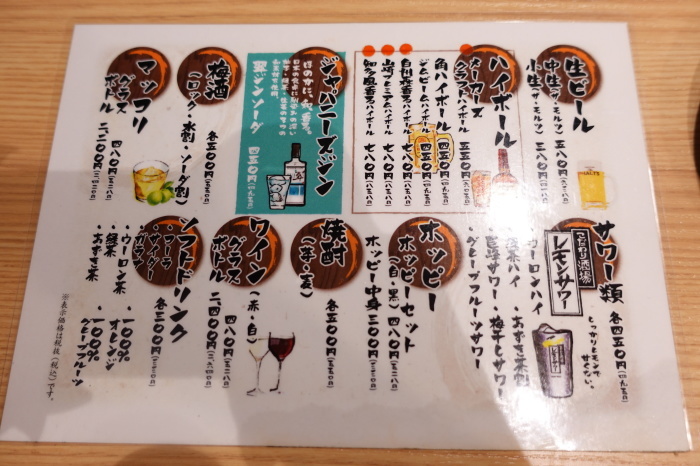 生ビール
中生(ザ・モルツ) 五八〇円(六三八円)
小生(ザ・モルツ) 三八〇円(四一八円)
ハイボール
メーカーズクラフトハイボール 五五〇円(六〇五円)
角ハイボール 四五〇円(四九五円)
ジムビームハイボール 四五〇円(四九五円)
白州香るハイボール 七八〇円(八五八円)
山崎プレミアムハイボール 七八〇円(八五八円)
知多風香るハイボール 七八〇円(八五八円)
ジャパニーズジン
ほのかに、爽、香る。
翠ジンソーダ 四五〇円(四九五円)
梅酒
(ロック・水割・ソーダ割)
各五〇〇円(五五〇円)
マッコリ
グラス 四八〇円(五二八円)
ボトル 二、二〇〇円(二、四二〇円)
サワー類
各四五〇円(四九五円)
こだわり酒場
レモンサワー
どっかりレモンで
甘くない。
・ウーロンハイ
・緑茶ハイ
・あずき茶割
・巨峰サワー
・梅干しサワー
・グレープフルーツサワー
ホッピー
ホッピーセット
(白・黒) 四八〇円(五二八円)
ホッピー中身 三〇〇円(三三〇円)
焼酎
(芋・麦)
各五〇〇円(五五〇円)
ワイン
(赤・白)
グラス 四八〇円(五二八円)
ボトル 二、四〇〇円(二、六四〇円)
ソフトドリンク
各三〇〇円(三三〇円)
・コーラ
・ウーロン茶
・緑茶
・あずき茶
・100%オレンジ
・100%グレープフルーツ
※表示価格は税抜(税込)です。